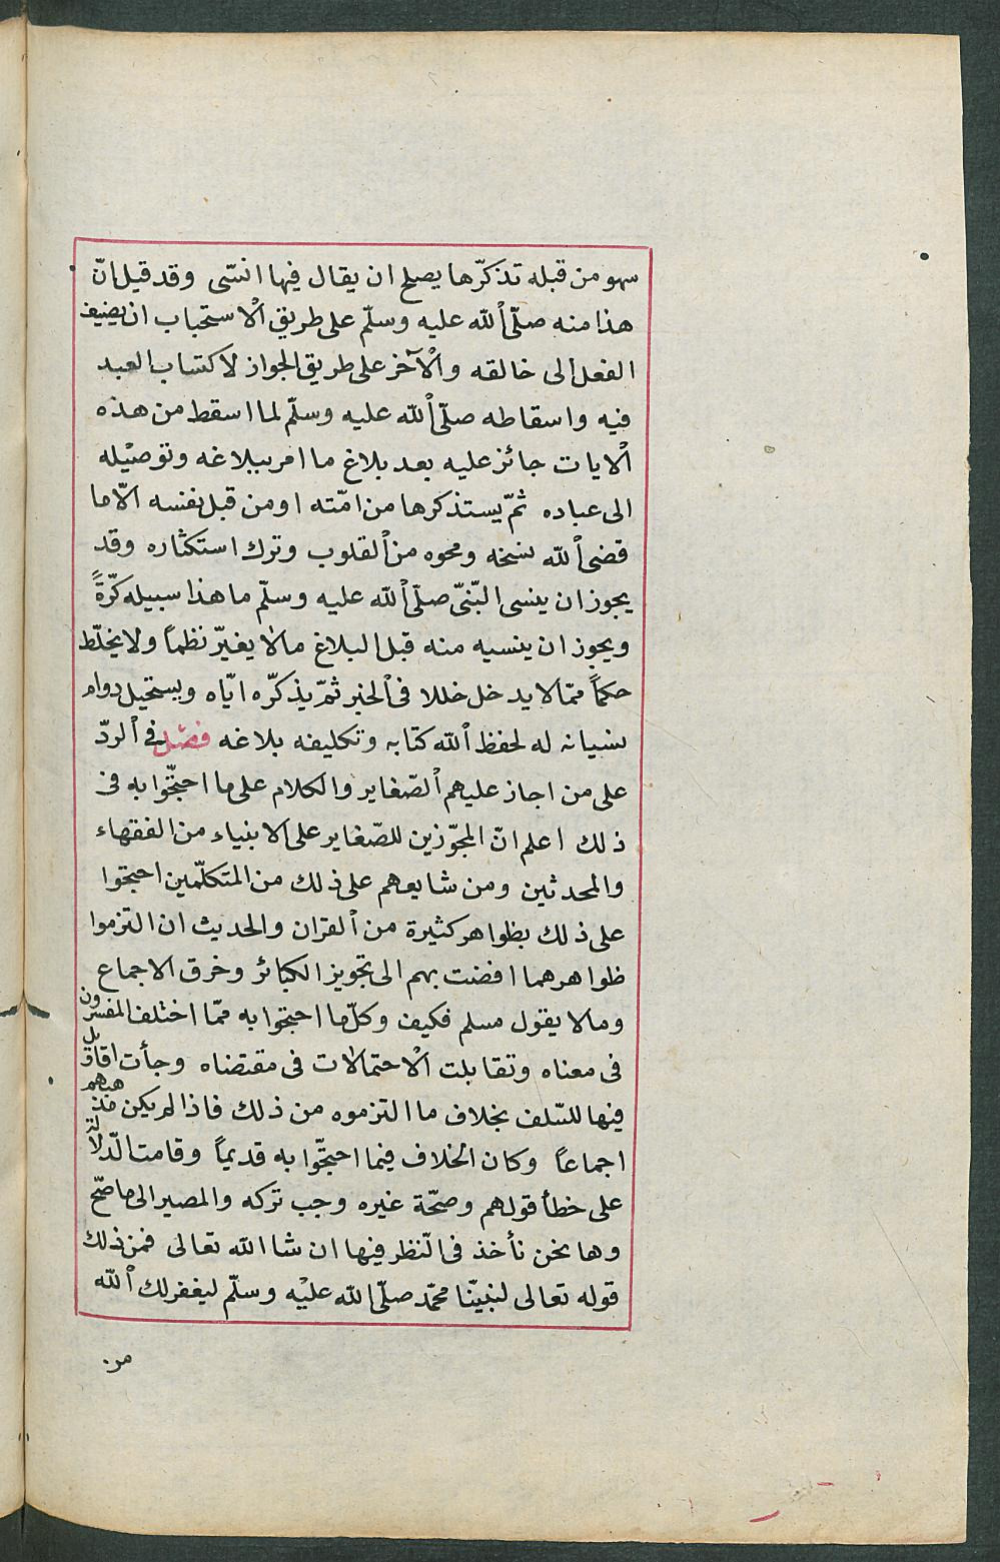 سهو من قبله تذكّرها يصلح ان يقال فيها انسّى وقد قيل انّ
هذا منه صلّى الله عليه وسلّم على طريق الاستحباب ان يضيف
الفعل الى خالقه والآخر على طريق الجواز لاكتساب العبد
فيه واسقاطه صلّى الله عليه وسلّم لما اسقط من هذه
الايات جائز عليه بعد بلاغ ما امر ببلاغه وتوصيله
الى عباده ثمّ يستذكرها من امّته او من قبل نفسه الّا ما
قضى الله نسخه ومحوه من القلوب وترك استكثاره وقد
يجوز ان ينسى النّبىّ صلّى الله عليه وسلّم ما هذا سبيله كرّةً
ويجوز ان ينسيه منه قبل البلاغ مالا يغيّر نظماً ولا يخلّط
حكماً ممّا لا يدخل خللا فى الخبر ثمّ يذكّره ايّاه ويستحيل دوام
نسيانه له لحفظ الله كتابه وتكليفه بلاغه فصل فى الردّ
على من اجاز عليهم الصّغاير والكلام على ما احتجّوا به فى
ذلك اعلم انّ المجوّزين للصّغاير على الانبياء من الفقهاء
والمحدثين ومن شايعهم على ذلك من المتكلّمين احتجوا
على ذلك بظواهر كثيرة من القران والحديث ان التزموا
ظواهرهما افضت بهم الى تجويز الكبائر وخرق الاجماع
ومالا يقول مسلم فكيف وكلّ ما احتجوا به ممّا اختلف المفسرون
فى معناه وتقابلت الاحتمالات فى مقتضاه وجأت اقاويل
فيها للسّلف بخلاف ما التزموه من ذلك فاذا لم يكن مذهبهم
اجماعاً وكان الخلاف فيما احتجّوا به قديماً وقامت الدّلالة
على خطأ قولهم وصحّة غيره وجب تركه والمصير الى ما صحّ
وها نحن نأخذ فى النّظر فيها ان شا الله تعالى فمن ذلك
قوله تعالى لنبيّنا محمّد صلّى الله عليه وسلّم ليغفر لك الله
من